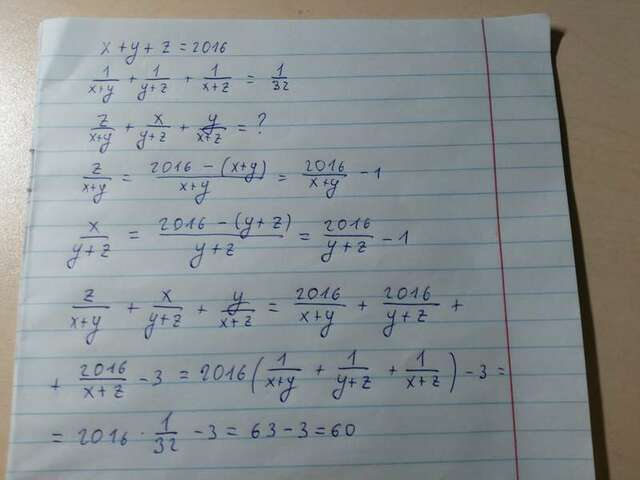 x + y + z = 2016
1/(x+y) + 1/(y+z) + 1/(x+z) = 1/32
z/(x+y) + x/(y+z) + y/(x+z) = ?
z/(x+y) = (2016 - (x+y))/(x+y) = 2016/(x+y) - 1
x/(y+z) = (2016 - (y+z))/(y+z) = 2016/(y+z) - 1
z/(x+y) + x/(y+z) + y/(x+z) = 2016/(x+y) + 2016/(y+z) +
+ 2016/(x+z) - 3 = 2016(1/(x+y) + 1/(y+z) + 1/(x+z)) - 3 =
= 2016 · 1/32 - 3 = 63 - 3 = 60